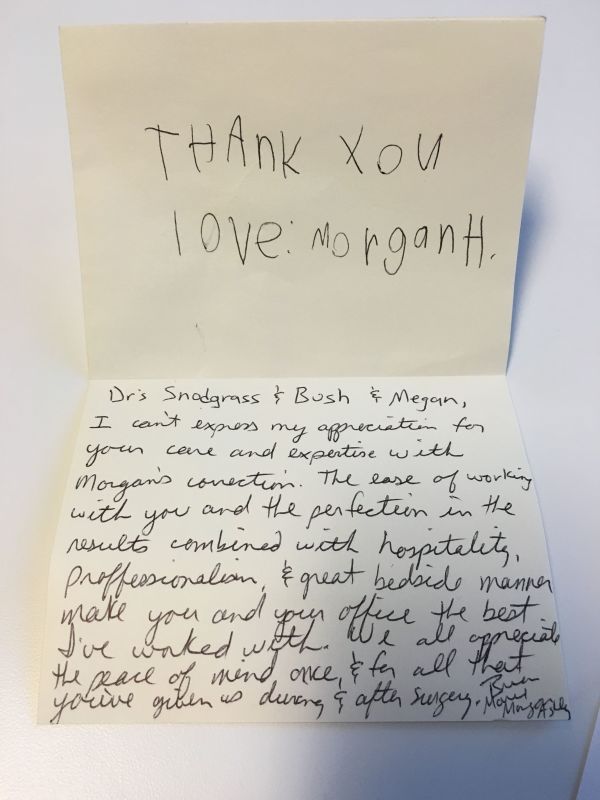 THANK YOU
love: MorganH.
Dr's Snodgrass & Bush & Megan,
I can't express my appreciation for
your care and expertise with
Morgan's correction. The ease of working
with you and the perfection in the
results combined with hospitality,
Proffessionalism, & great bedside manner
make you and your office the best
I've worked with. We all appreciate
the peace of mind once, & for all that
you've given us during & after surgery.